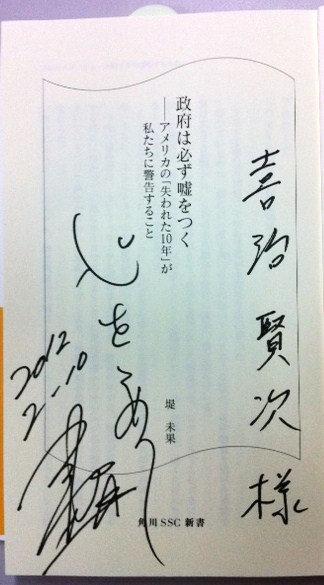 喜治賢次様
政府は必ず嘘をつく
──アメリカの「失われた10年」が
私たちに警告すること
心をこめ
2012
2-10
堤 未果
角川SSC新書